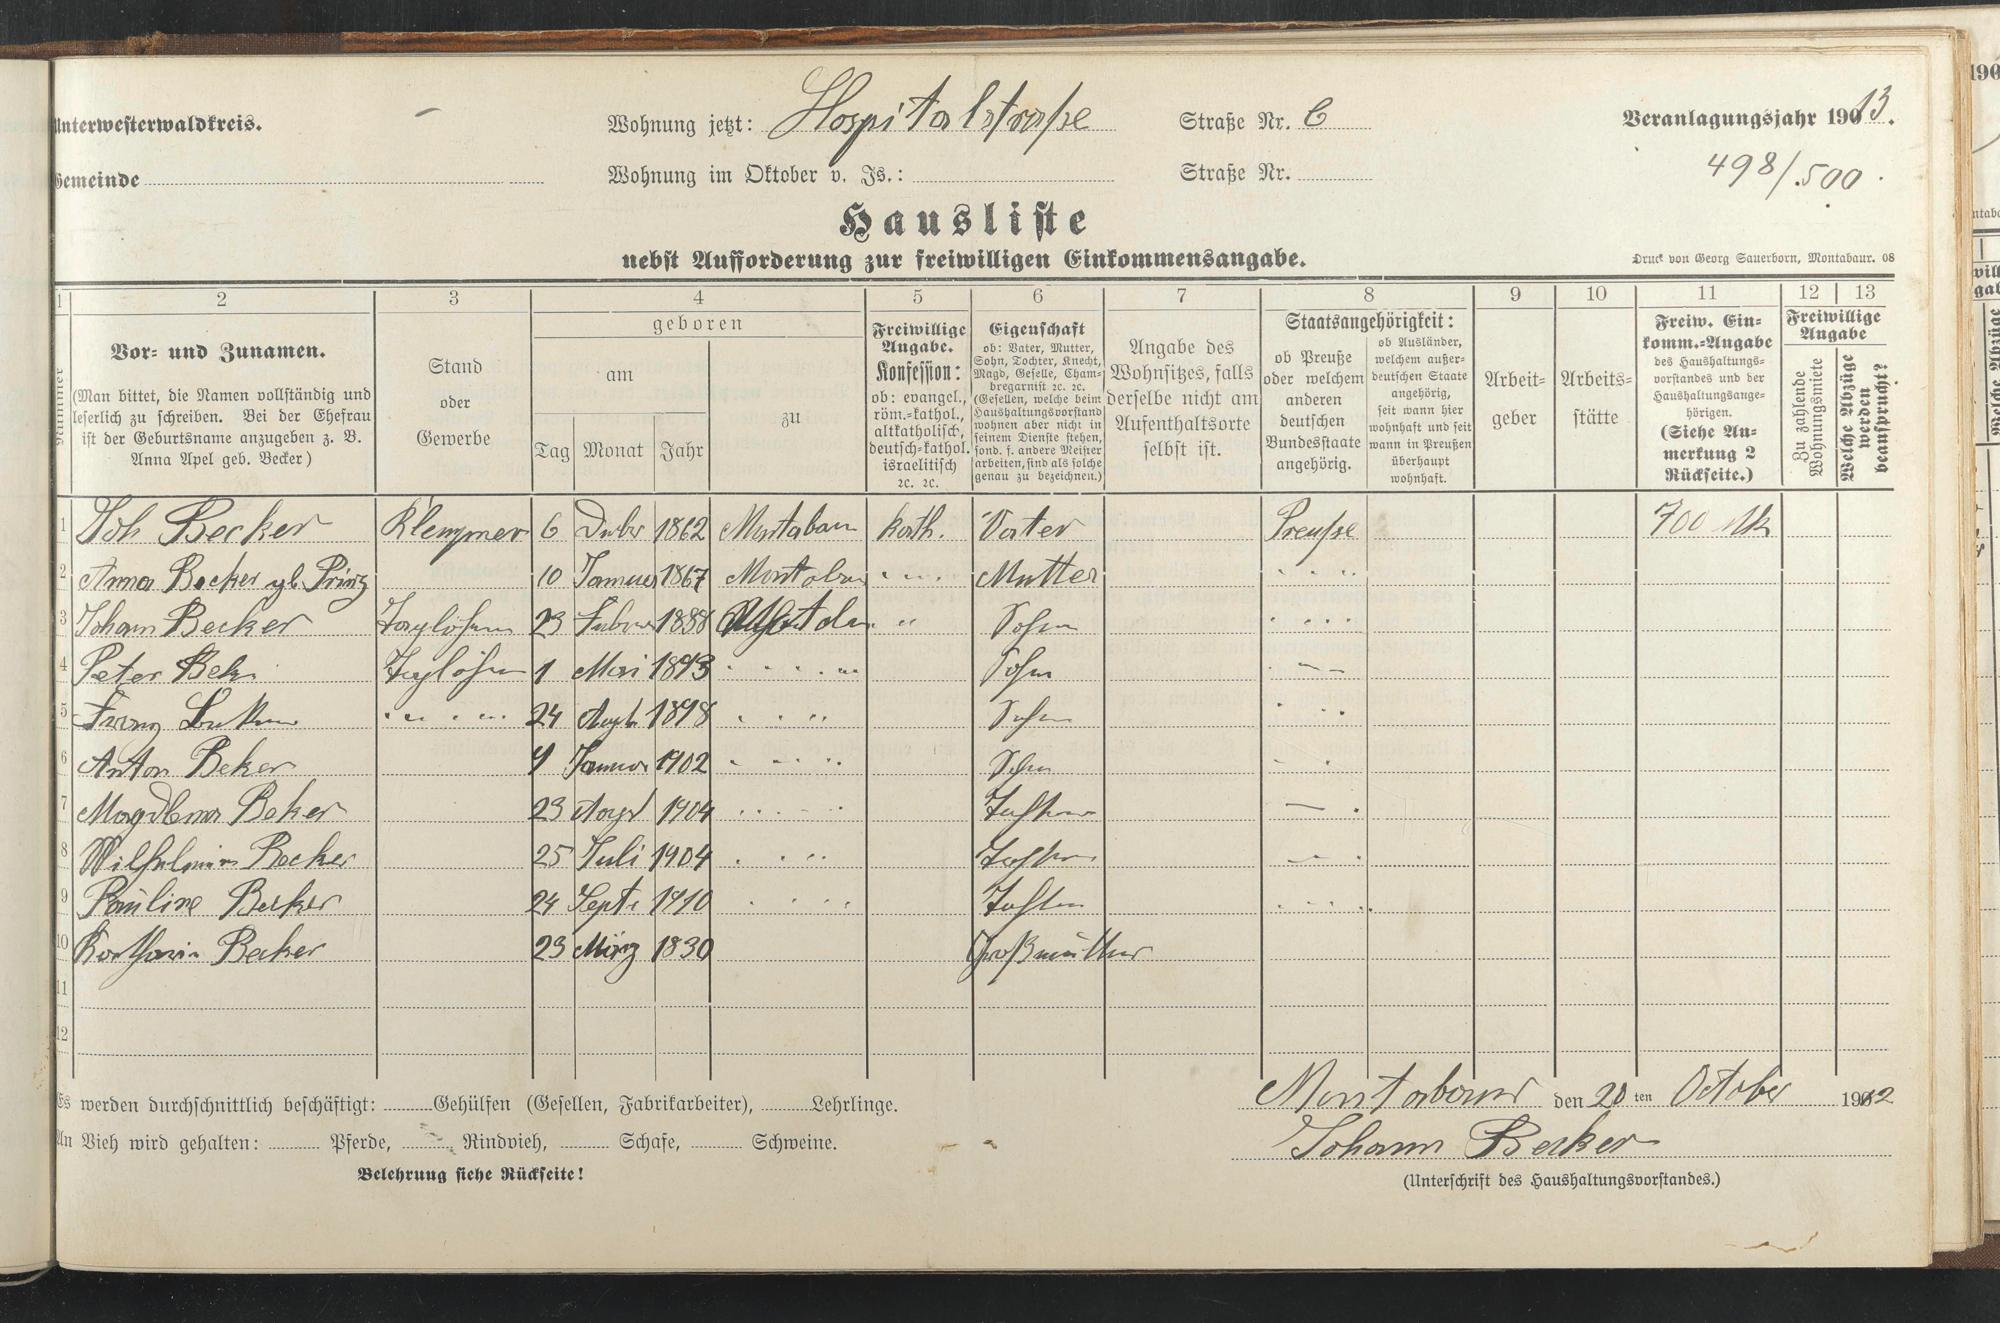 Unterwesterwaldkreis.
Wohnung jetzt: Hospitalstraße Straße Nr. 6
Veranlagungsjahr 19013.
Gemeinde
Wohnung im Oktober v. Js.: Straße Nr.
498/500
Hausliste
nebst Aufforderung zur freiwilligen Einkommensangabe.
Druck von Georg Sauerborn, Montabaur. 08
1 2 3 4 5 6 7 8 9 10 11 12 13
Nummer
Vor- und Zunamen.
(Man bittet, die Namen vollständig und
leserlich zu schreiben. Bei der Ehefrau
ist der Geburtsname anzugeben z. B.
Anna Apel geb. Becker)
Stand
oder
Gewerbe
geboren
am
Tag Monat Jahr
zu
Freiwillige
Angabe.
Konfession:
ob: evangel.,
röm.=kathol.,
altkatholisch,
deutsch=kathol.
israelitisch
ꝛc. ꝛc.
Eigenschaft
ob: Vater, Mutter,
Sohn, Tochter, Knecht,
Magd, Geselle, Cham-
bregarnist ꝛc. ꝛc.
(Gesellen, welche beim
Haushaltungsvorstand
wohnen aber nicht in
seinem Dienste stehen,
sond. f. andere Meister
arbeiten, sind als solche
genau zu bezeichnen.)
Angabe des
Wohnsitzes, falls
derselbe nicht am
Aufenthaltsorte
selbst ist.
Staatsangehörigkeit:
ob Preuße
oder welchem
anderen
deutschen
Bundesstaate
angehörig.
ob Ausländer,
welchem außer-
deutschen Staate
angehörig,
seit wann hier
wohnhaft und seit
wann in Preußen
überhaupt
wohnhaft.
Arbeit-
geber
Arbeits-
stätte
Freiw. Ein-
komm.=Angabe
des Haushaltungs-
vorstandes und der
Haushaltungsange-
hörigen.
(Siehe An-
merkung 2
Rückseite.)
Freiwillige
Angabe
Zu zahlende
Wohnungsmiete
Welche Abzüge
werden
beansprucht?
1 Joh Becker Klempner 6 1862 Montabaur kath. Vater Preuße 700 Mk
2 Anna Becker gb. Prinz 10 Januar 1867 Montabaur " Mutter "
3 Johann Becker Taglöhner 23 1888 " Sohn "
4 Peter Beker Taglöhner 1 Mai 1893 " Sohn "
5 Franz " 24 1898 " Sohn "
6 Anton Beker Januar 1902 " Sohn "
7 Magdlena Beker 23 1904 " Tochter "
8 Wilhelmine Becker 25 Juli 1904 " Tochter "
9 Pauline Becker 24 Sept. 1910 " Tochter "
10 Katharin Becker 23 März 1830 Großmutter
11
12
Es werden durchschnittlich beschäftigt: Gehülfen (Gesellen, Fabrikarbeiter), Lehrlinge.
Montabaur den 20 ten October 1912
An Vieh wird gehalten: Pferde, Rindvieh, Schafe, Schweine.
Johann Becker
Belehrung siehe Rückseite!
(Unterschrift des Haushaltungsvorstandes.)